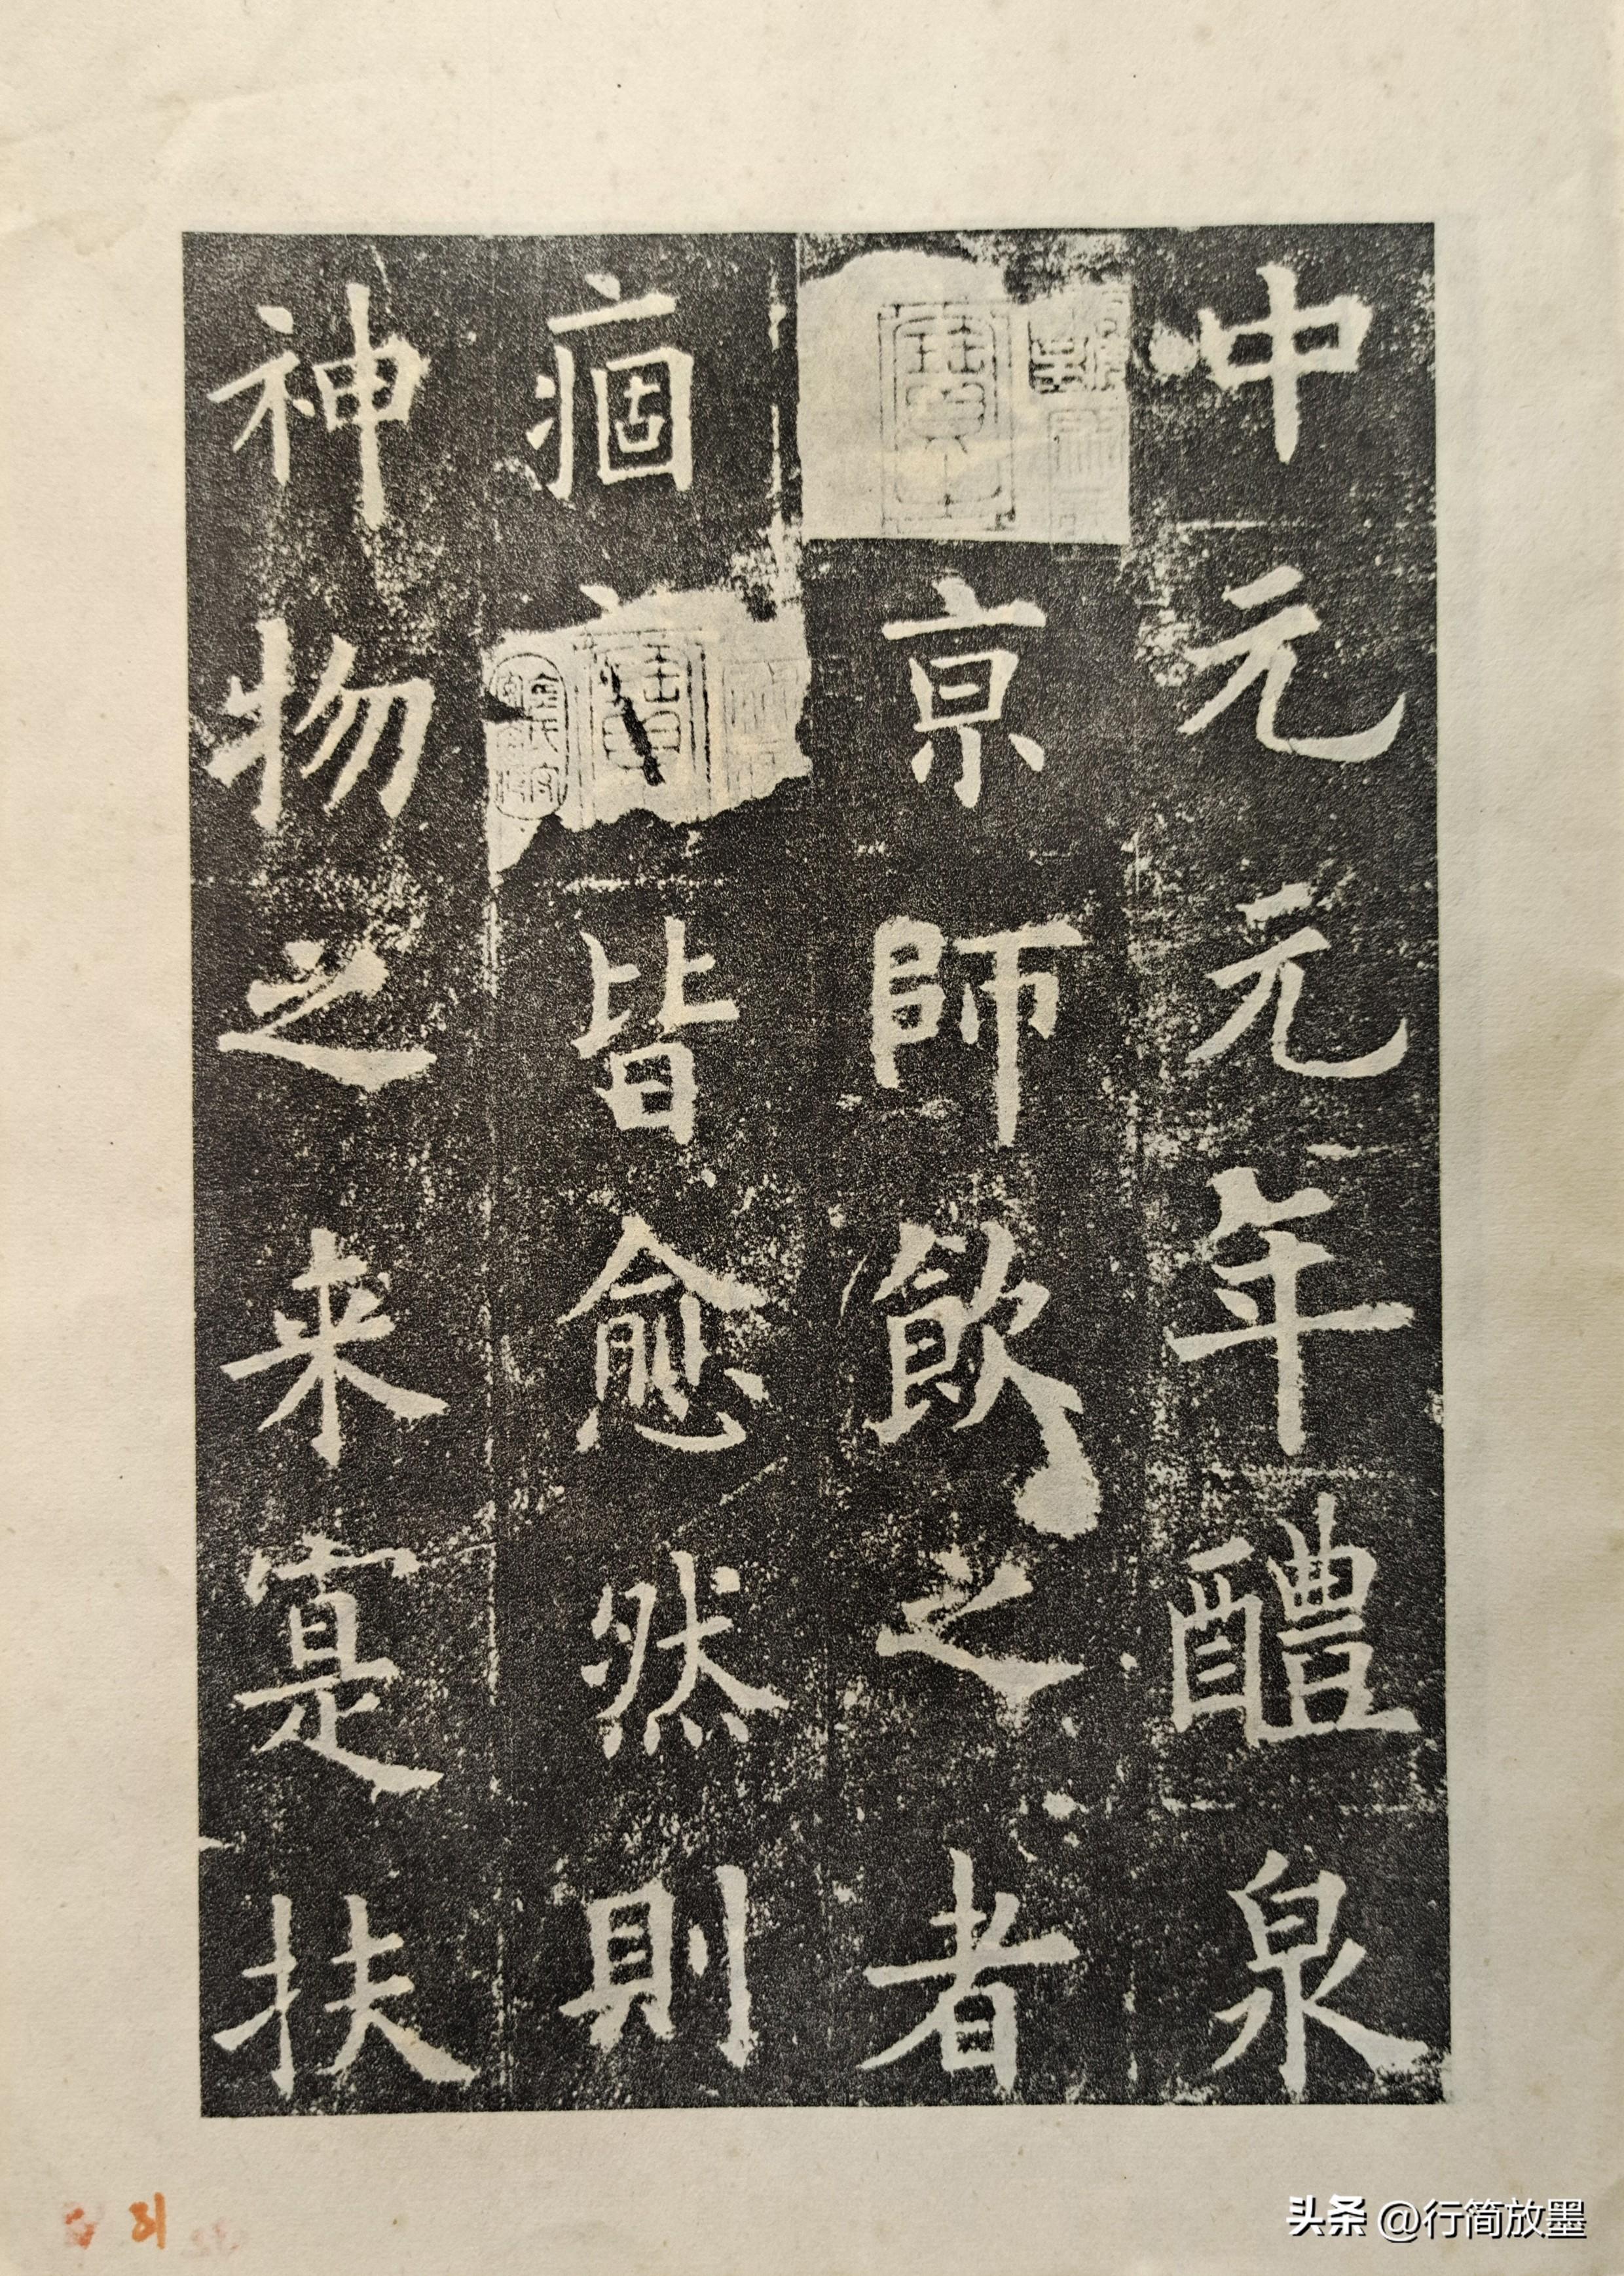 中元元年醴泉
京師飲之者
痼皆愈然則
神物之来寔扶
31
头条 @行简放墨